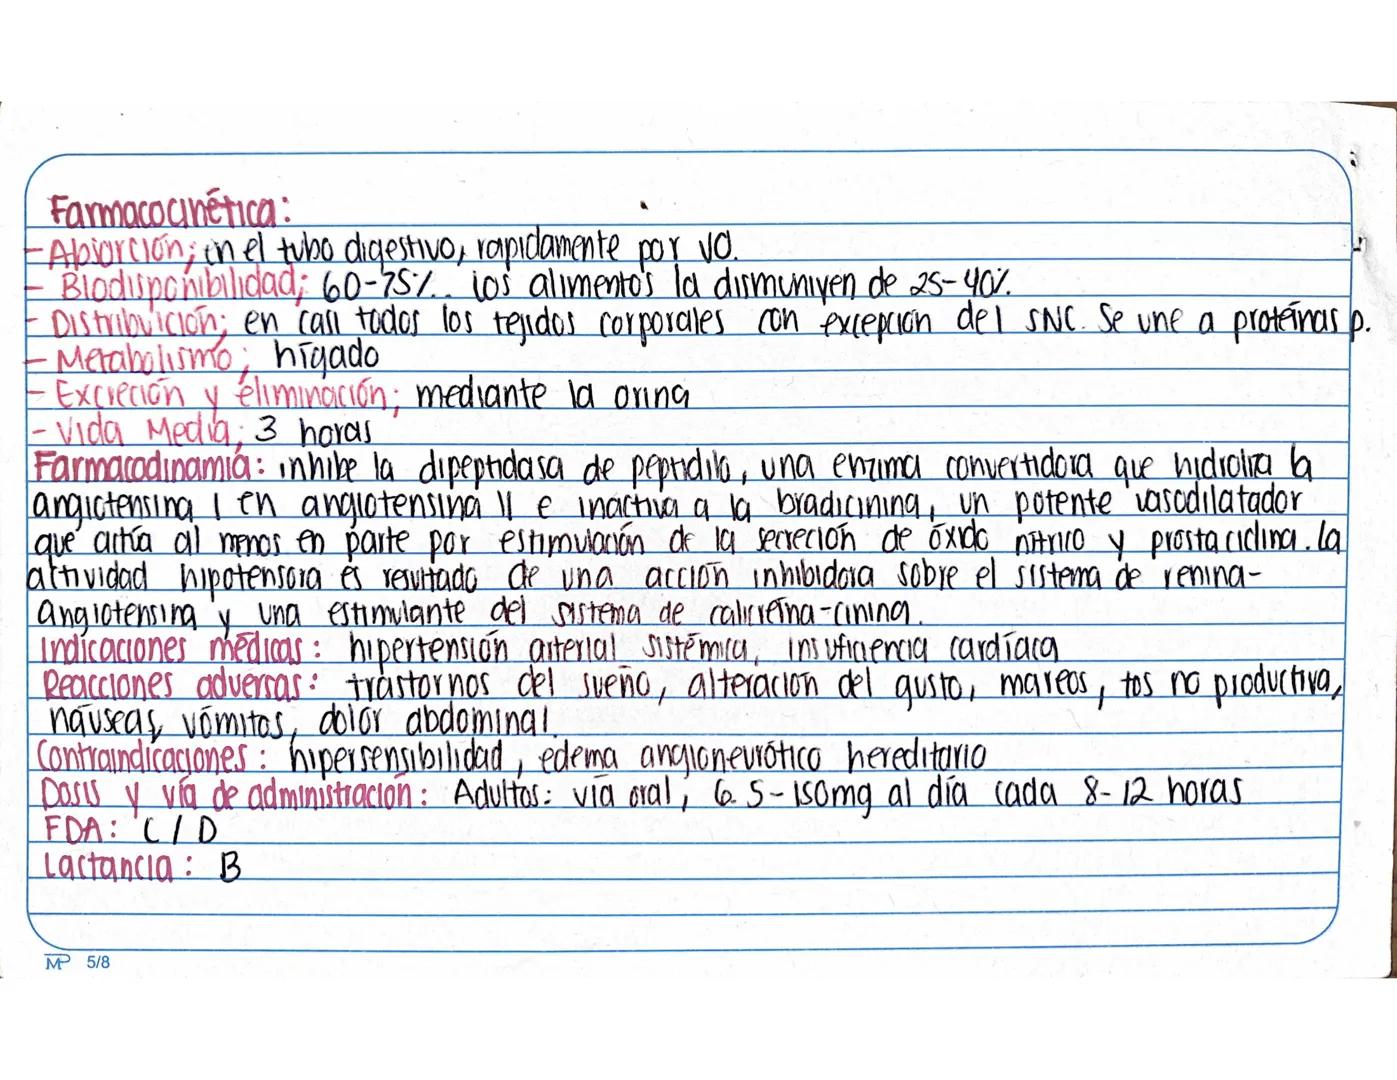 Farmacocinética:
- Absorción; en el tubo digestivo, rapidamente por VO.
- Biodisponibilidad; 60-75%.. los alimentos la dismuniyen de 25-40%.
- Distribuición; en casi todos los tejidos corporales con excepción del SNC. Se une a proteínas p.
- Metabolismo; hígado
- Excreción y eliminación; mediante la orina
- Vida Media; 3 horas
Farmacodinamia: inhibe la dipeptidasa de peptidilo, una enzima convertidora que hidroliza la
angiotensina I en angiotensina II e inactiva a la bradicinina, un potente vasodilatador
que actúa al menos en parte por estimulación de la secreción de óxido nítrico y prostaciclina. La
actividad hipotensora es resultado de una acción inhibidora sobre el sistema de renina-
angiotensina y una estimulante del sistema de calicreína-cinina.
Indicaciones médicas: hipertensión arterial sistémica, insuficiencia cardíaca
Reacciones adversas: trastornos del sueño, alteración del gusto, mareos, tos no productiva,
náuseas, vómitos, dolor abdominal.
Contraindicaciones: hipersensibilidad, edema angioneurótico hereditario
Dosis y vía de administración: Adultos: vía oral, 6.5-150mg al día cada 8-12 horas
FDA: C/D
Lactancia: B
MP 5/8